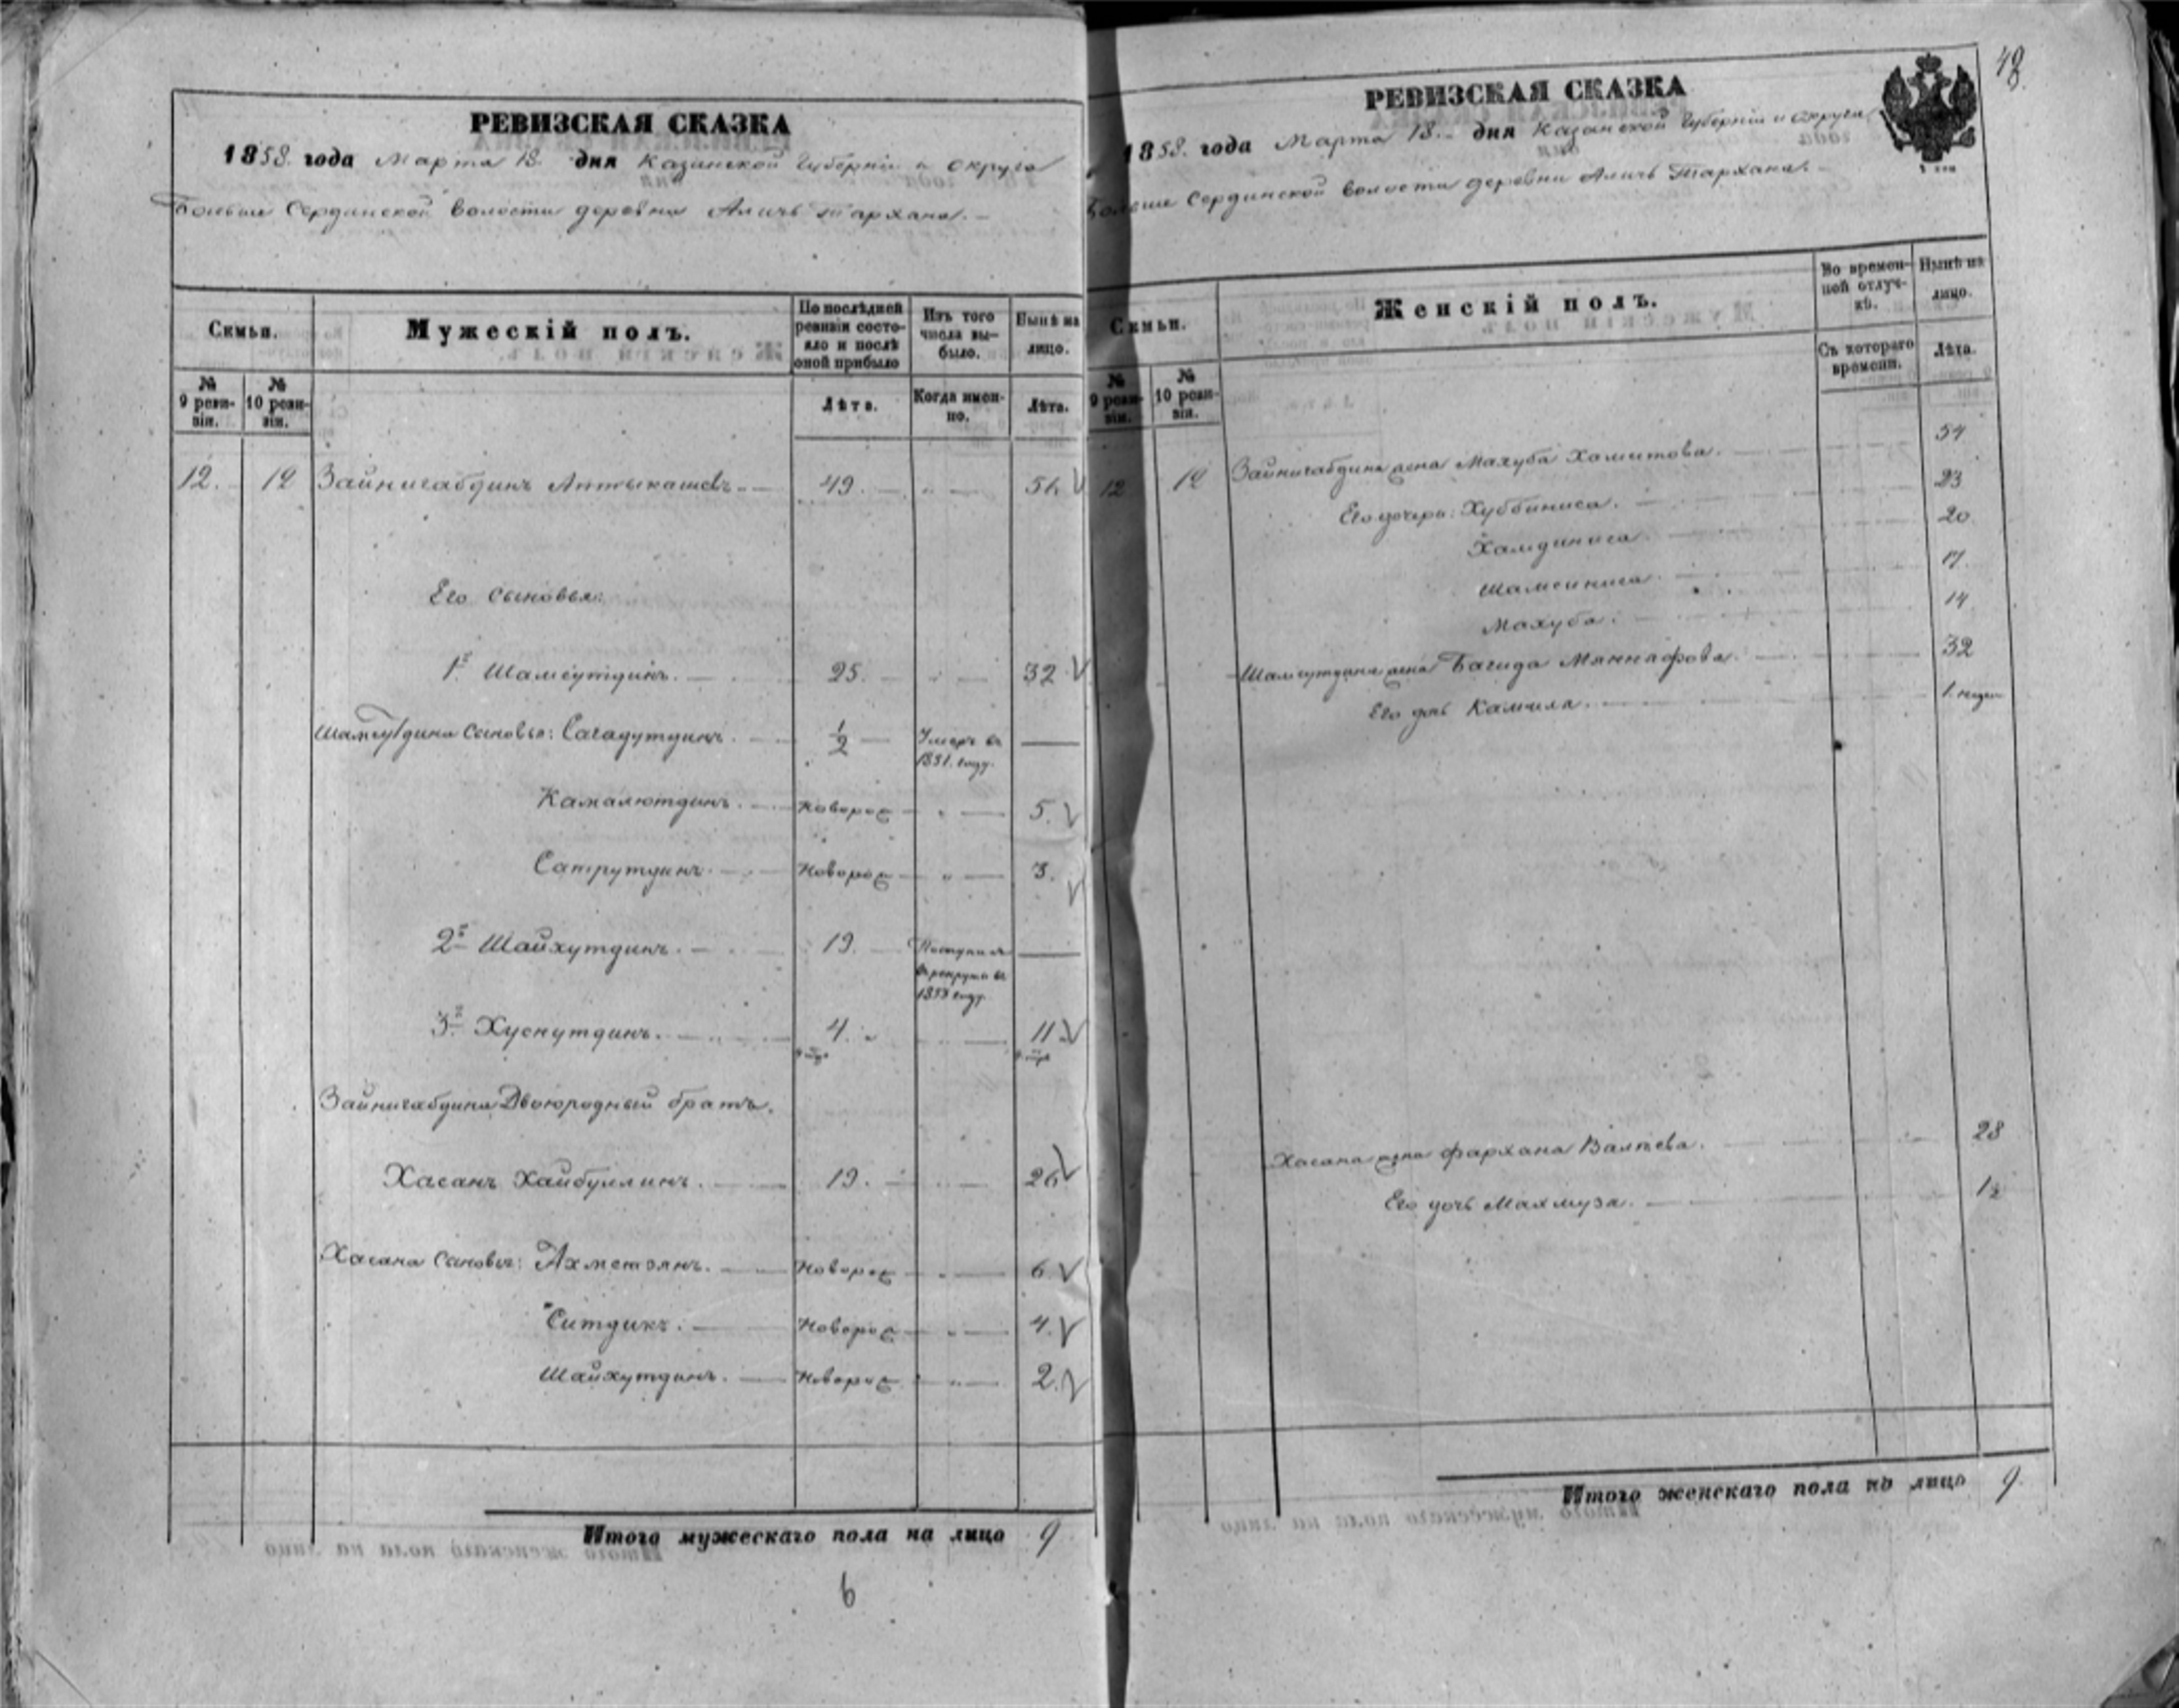 РЕВИЗСКАЯ СКАЗКА
1858. года Марта 18. дня Казанской Губернiи и округа
Больше Сердинской волости деревни Аличь Тархана.
Семьи.
Мужескiй полъ.
По послѣдней ревизiи состояло и послѣ оной прибыло
Изъ того числа выбыло.
Нынѣ на лицо.
№ 9 ревизiи.
№ 10 ревизiи.
Лѣта.
Когда именно.
Лѣта.
12. 12 Зайнигабдинъ 49. „ 56
Его сыновья:
1й Шамсутдинъ. 25. „ 32
Шамсутдина сыновья: Сагадутдинъ. 1/2 Умеръ въ 1851. году.
Камалютдинъ. Новорож „ 5.
Сатрутдинъ. Новорож „ 3.
2й Шайхутдинъ. 19. Поступилъ въ рекруты въ году.
3й Хуснутдинъ. 4. 11
Зайнигабдина Двоюродный братъ.
Хасанъ Хайбуллинъ. 19. „ 26
Хасана сыновья: Ахметзянъ. Новорож „ 6.
Ситдикъ. Новорож „ 4.
Шайхутдинъ. Новорож „ 2.
Итого мужескаго пола на лицо 9
6
48
РЕВИЗСКАЯ СКАЗКА
1858. года Марта 18. дня Казанской Губернiи и округа
Больше Сердинской волости деревни Аличь Тархана.
Семьи.
Женскiй полъ.
Во временной отлучкѣ.
Нынѣ на лицо.
№ 9 ревизiи.
№ 10 ревизiи.
Съ котораго времени.
Лѣта.
12 12 Зайнигабдина жена Махуба Хамитова. 54
Его дочери: Хуббиниса. 23
Хамдиниса. 20.
Шамсиниса. 17.
Махуба. 14
Шамсутдина жена Багида Маннафова. 32
Его дочь Камила. 1. недел
Хасана жена Фархана Валеева. 28
Его дочь Махмуза. 1/2
Итого женскаго пола на лицо 9.